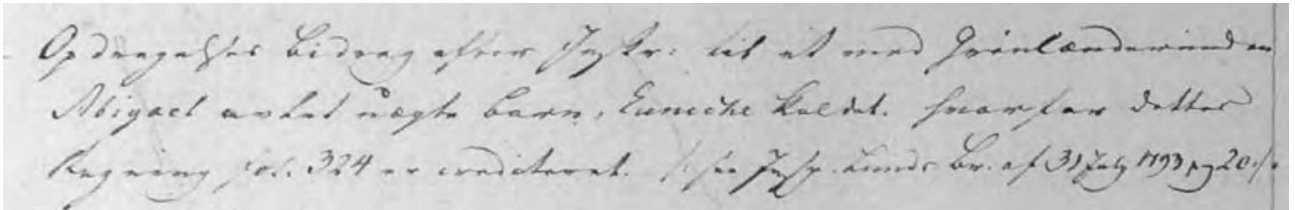 Opdragelses Bidrag efter Instr: til et med Grönlænderinden
Abigael avlet uægte barn, Euniche kaldet. hvorfor dettes
Regning fol. 324 er crediteret. /: see Insp. Lunds Br. af 31 July 1793 pag 20 :/.